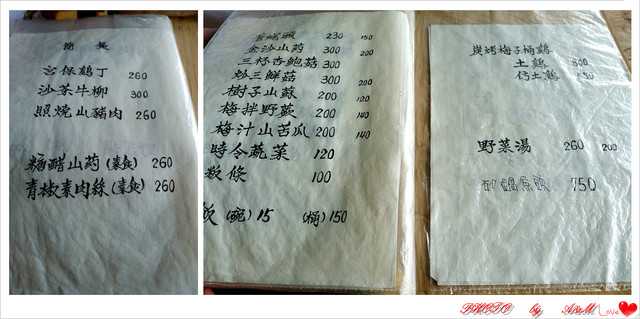 簡餐
宮保鷄丁 260
沙茶牛柳 300
照燒山豬肉 260
糖醋山药(素食) 260
青椒素肉絲(素食) 260
230 150
金沙山药 300 200
三杯杏鮑菇 300
炒三鮮菇 300 200
樹子山蘇 200 120
梅拌野蕨 200 140
梅汁山苦瓜 200 140
時令蔬菜 120
粄條 100
飯(碗)15 (桶)150
炭烤梅子桶鷄
土鷄 800
仿土鷄
野菜湯 260 200
砂鍋魚頭 750
PHOTO by Love